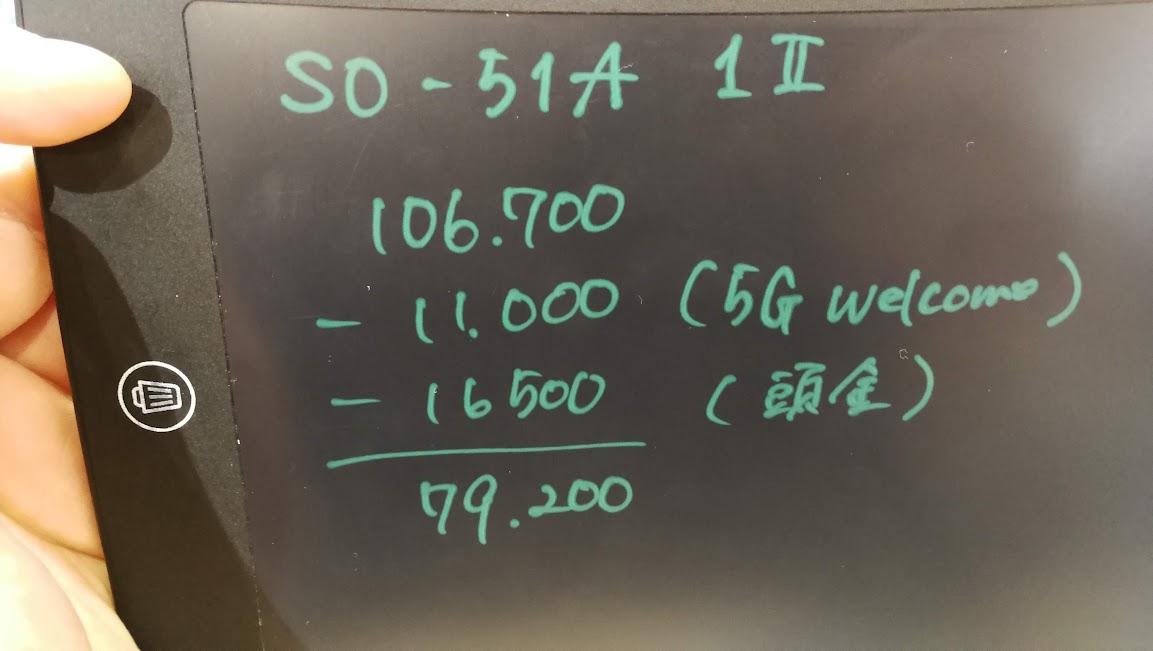 SO-51A 1Ⅱ
106.700
- 11.000 (5G welcome)
- 16500 (頭金)
79.200